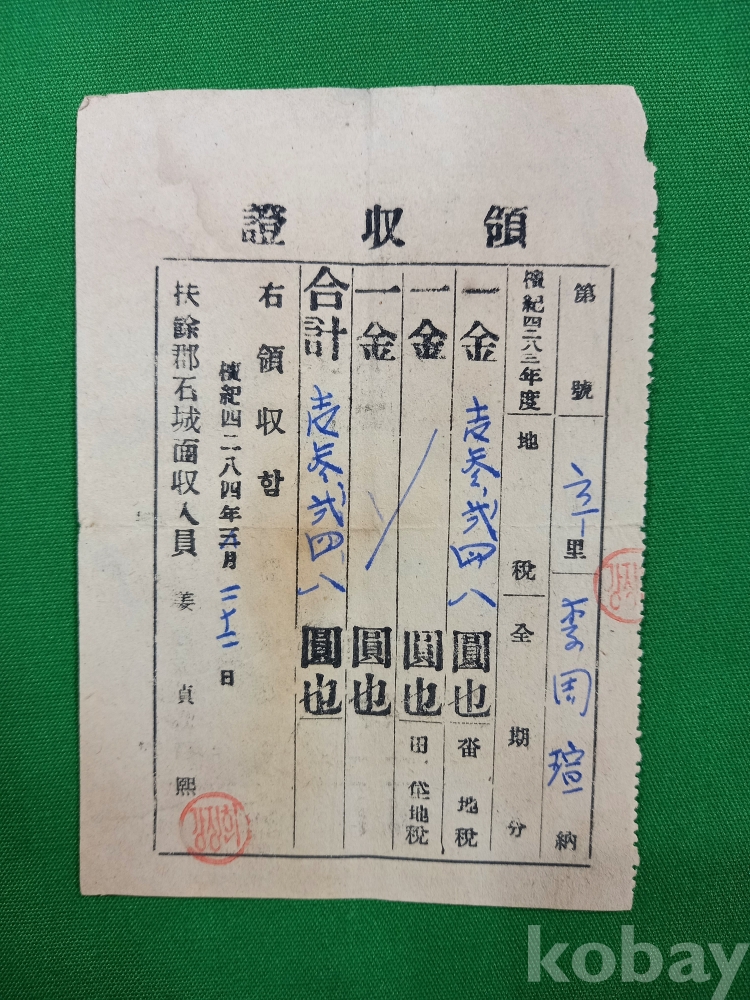 領收證
第 號 里 李周瑄 納
檀紀四二八三年度 地稅 全期分
一金 壱参弐四八 圓也 畓 地稅
一金 圓也 田 垈地稅
一金 圓也
合計 壱参弐四八 圓也
右領收함
檀紀四二八四年五月二十二日
扶餘郡石城面収入員 姜貞熙
강정희
kobay